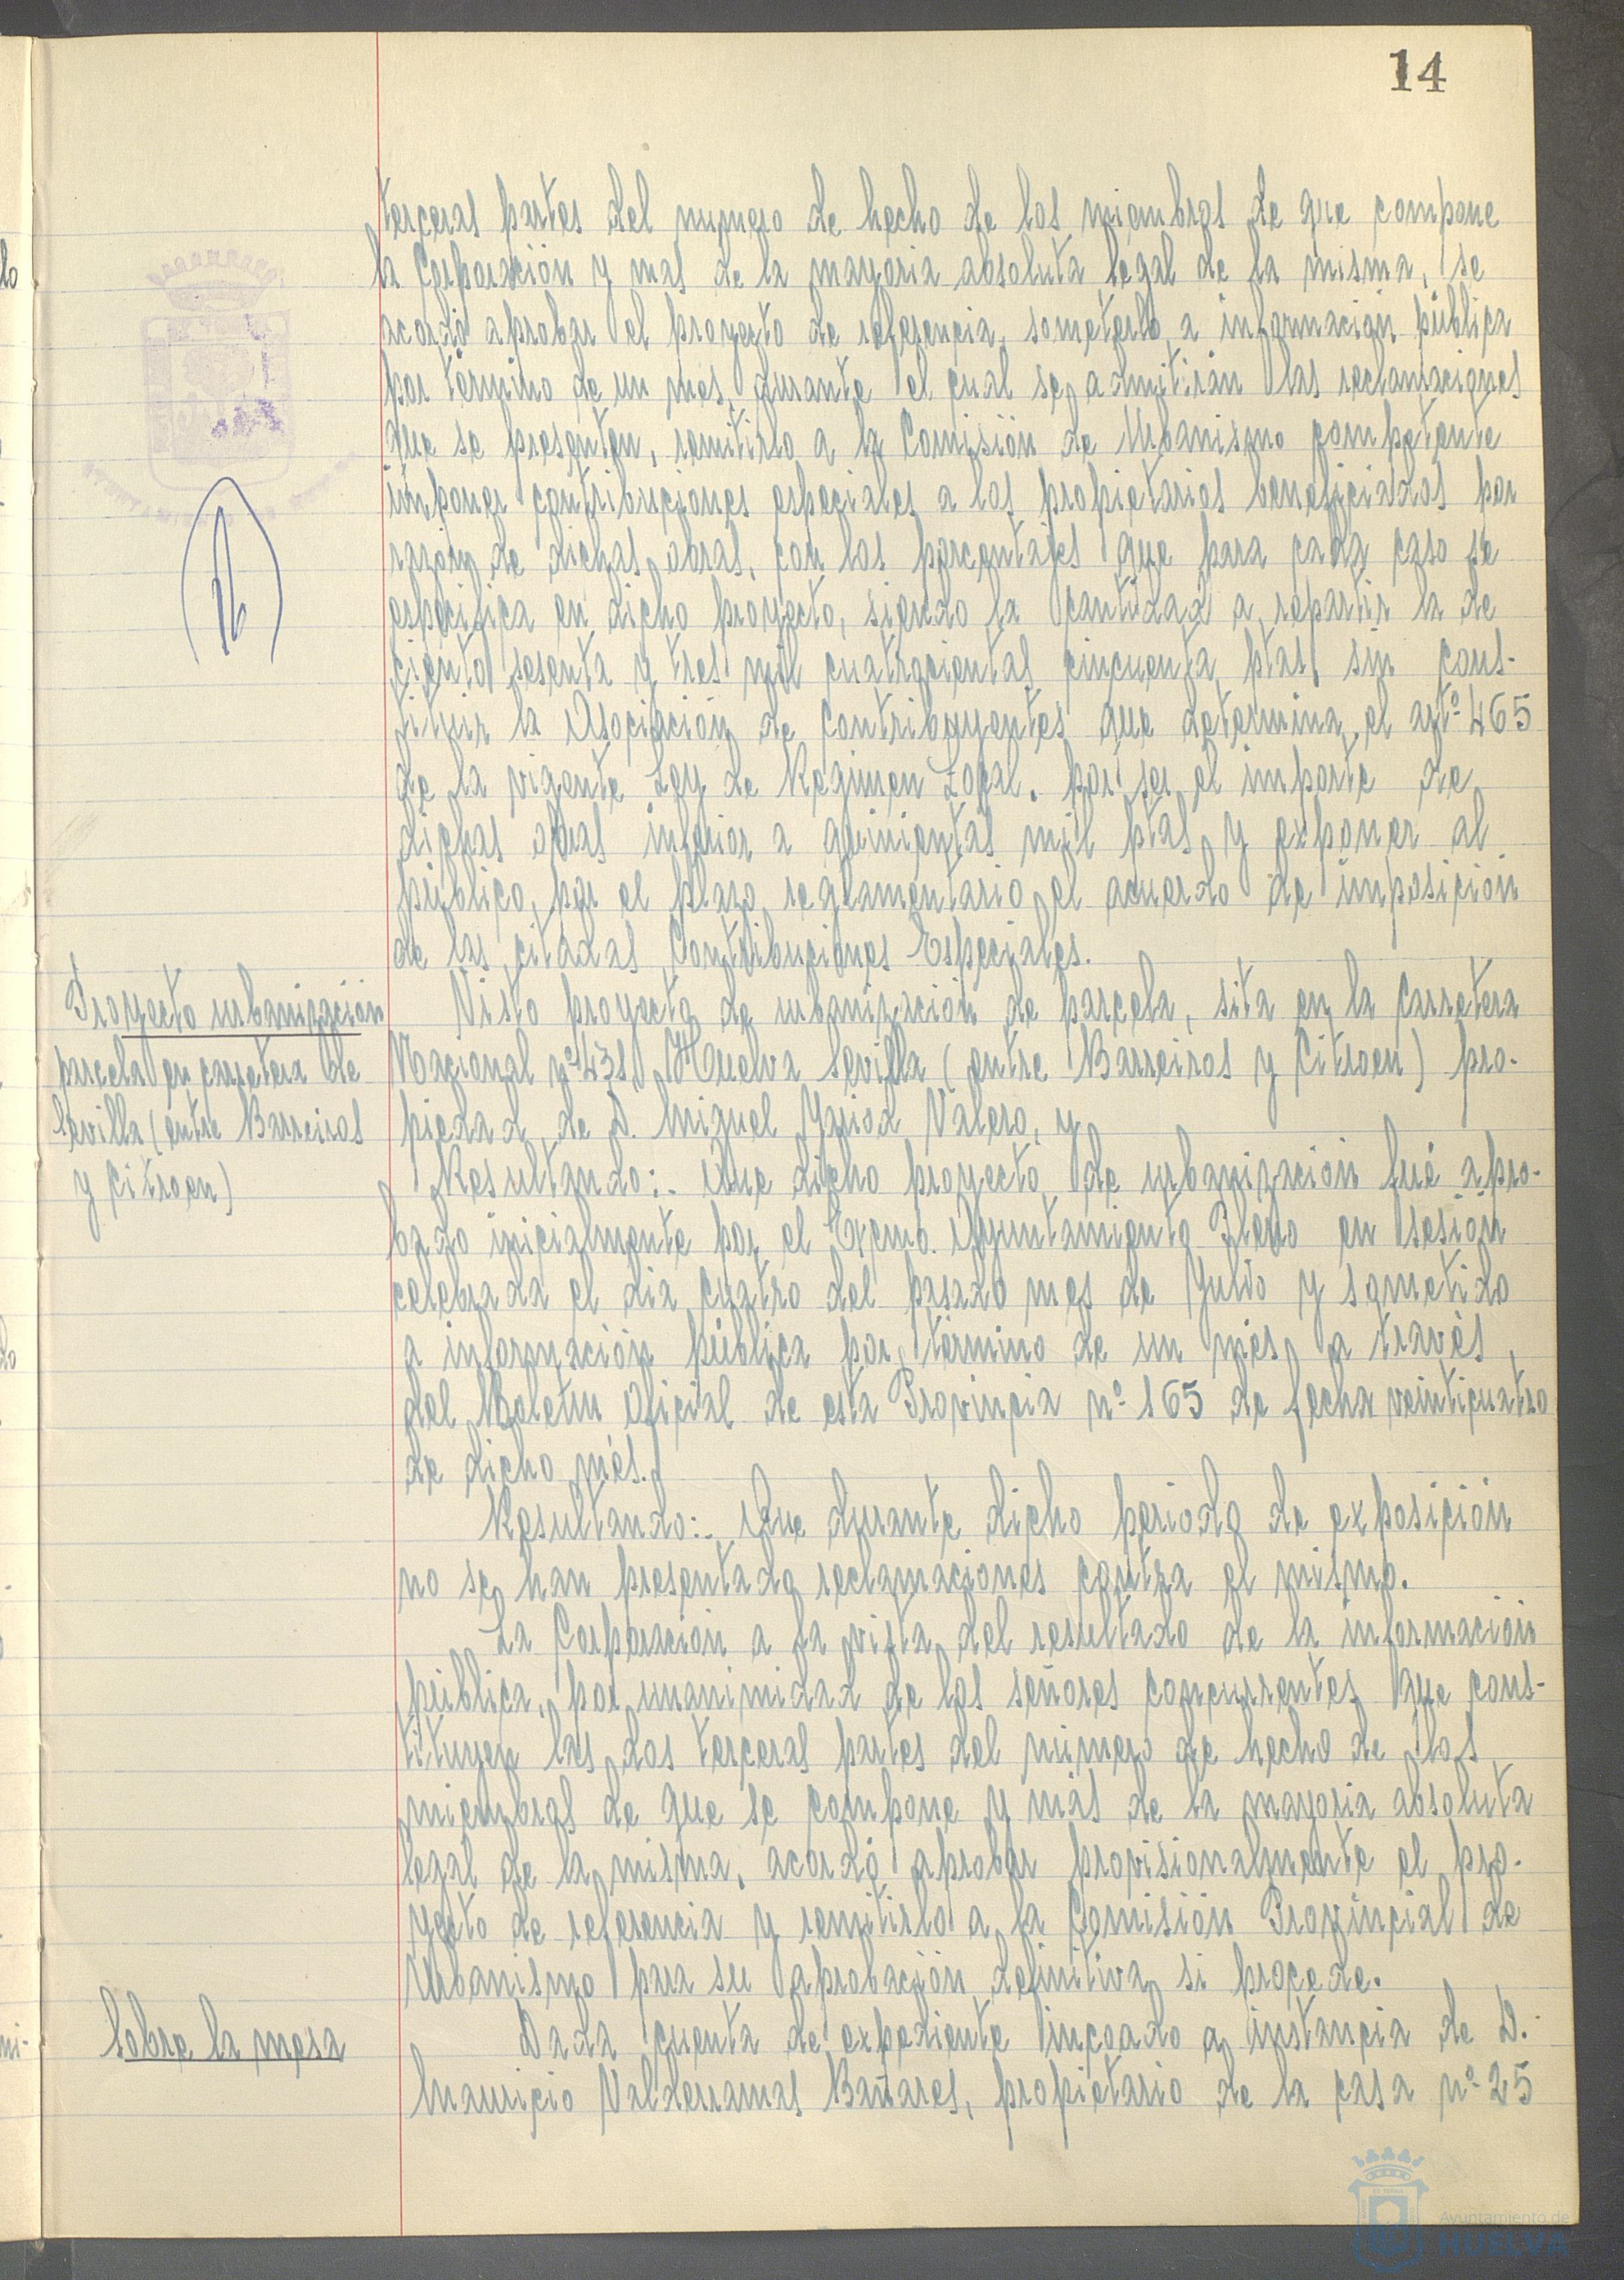 14
terceras partes del numero de hecho de los miembros de que compone
la Corporación y mas de la mayoria absoluta legal de la misma, se
acordó aprobar el proyecto de referencia, someterlo a información pública
por término de un mes, durante el cual se admitirán las reclamaciones
que se presenten, remitirlo a la Comisión de Urbanismo competente
imponer contribuciones especiales a los propietarios beneficiados por
razón de dichas obras, con los porcentajes que para cada caso se
especifica en dicho proyecto, siendo la cantidad a repartir la de
ciento sesenta y tres mil cuatrocientas cincuenta ptas, sin cons-
tituir la Asociación de Contribuyentes que determina el artº 465
de la vigente Ley de Regimen Local. por ser el importe de
dichas obras inferior a quinientas mil ptas y exponer al
público, por el plazo reglamentario el acuerdo de imposición
de las citadas Contribuciones Especiales.
Proyecto urbanización
parcela en carretera de
Sevilla (entre Barreiros
y Citroen)
Visto proyecto de urbanización de parcela, sita en la carretera
Nacional nº 431, Huelva Sevilla (entre Barreiros y Citroen) pro-
piedad de D. Miguel Valero, y
Resultando:. Que dicho proyecto de urbanización fué apro-
bado inicialmente por el Excmo. Ayuntamiento Pleno en sesión
celebrada el dia cuatro del pasado mes de Julio y sometido
a información pública por término de un mes a través
del Boletin Oficial de esta Provincia nº 165 de fecha veinticuatro
de dicho mes.
Resultando:. Que durante dicho periodo de exposición
no se han presentado reclamaciones contra el mismo.
La Corporación a la vista del resultado de la información
pública, por unanimidad de los señores concurrentes que cons-
tituyen las dos terceras partes del número de hecho de los
miembros de que se compone y más de la mayoria absoluta
legal de la misma, acordó aprobar provisionalmente el pro-
yecto de referencia y remitirlo a la Comisión Provincial de
Urbanismo para su aprobación definitiva si procede.
Sobre la mesa
Dada cuenta de expediente incoado a instancia de D.
Mauricio Valderramas Bañares, propietario de la casa nº 25
Ayuntamiento de
HUELVA